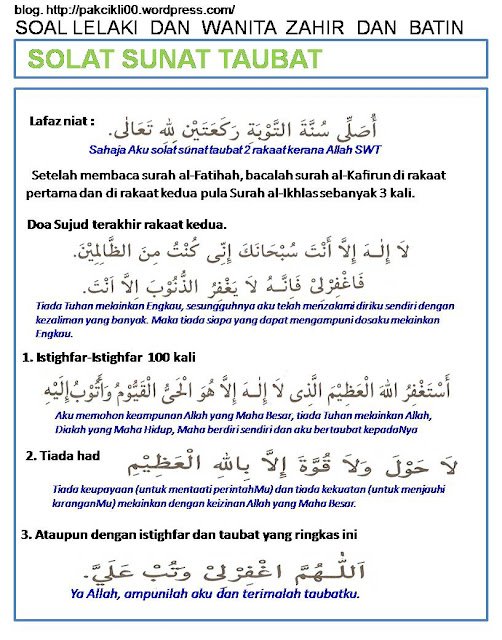 blog. http://pakcikli00.wordpress.com/
SOAL LELAKI DAN WANITA ZAHIR DAN BATIN
SOLAT SUNAT TAUBAT
Lafaz niat : أُصَلِّى سُنَّةَ التَّوْبَةِ رَكْعَتَيْنِ لِلهِ تَعَالَى.
Sahaja Aku solat sunat taubat 2 rakaat kerana Allah SWT
Setelah membaca surah al-Fatihah, bacalah surah al-Kafirun di rakaat
pertama dan di rakaat kedua pula Surah al-Ikhlas sebanyak 3 kali.
Doa Sujud terakhir rakaat kedua.
لَا إِلٰـهَ إِلَّا أَنْتَ سُبْحَانَكَ إِنِّى كُنْتُ مِنَ الظَّالِمِيْنَ.
فَاغْفِرْلِىْ فَانَّـهُ لَا يَغْفِرُ الذُّنُوْبَ إِلَّا اَنْتَ.
Tiada Tuhan melainkan Engkau, sesungguhnya aku telah menzalami diriku sendiri dengan
kezaliman yang banyak. Maka tiada siapa yang dapat mengampuni dosaku melainkan
Engkau.
1. Istighfar-Istighfar 100 kali
أَسْتَغْفِرُ اللهَ الْعَظِيْمَ الَّذِى لَا إِلٰـهَ إِلَّا هُوَ الْحَىُّ الْقَيُّوْمُ وَأَتُوْبُ إِلَيْهِ
Aku memohon keampunan Allah yang Maha Besar, tiada Tuhan melainkan Allah,
Dialah yang Maha Hidup, Maha berdiri sendiri dan aku bertaubat kepadaNya
2. Tiada had لَا حَوْلَ وَلَا قُوَّةَ إِلَّا بِاللهِ الْعَظِيْمِ
Tiada keupayaan (untuk mentaati perintahMu) dan tiada kekuatan (untuk menjauhi
laranganMu) melainkan dengan keizinan Allah yang Maha Besar.
3. Ataupun dengan istighfar dan taubat yang ringkas ini
اَللّٰهُمَّ اغْفِرْلِىْ وَتُبْ عَلَىَّ.
Ya Allah, ampunilah aku dan terimalah taubatku.